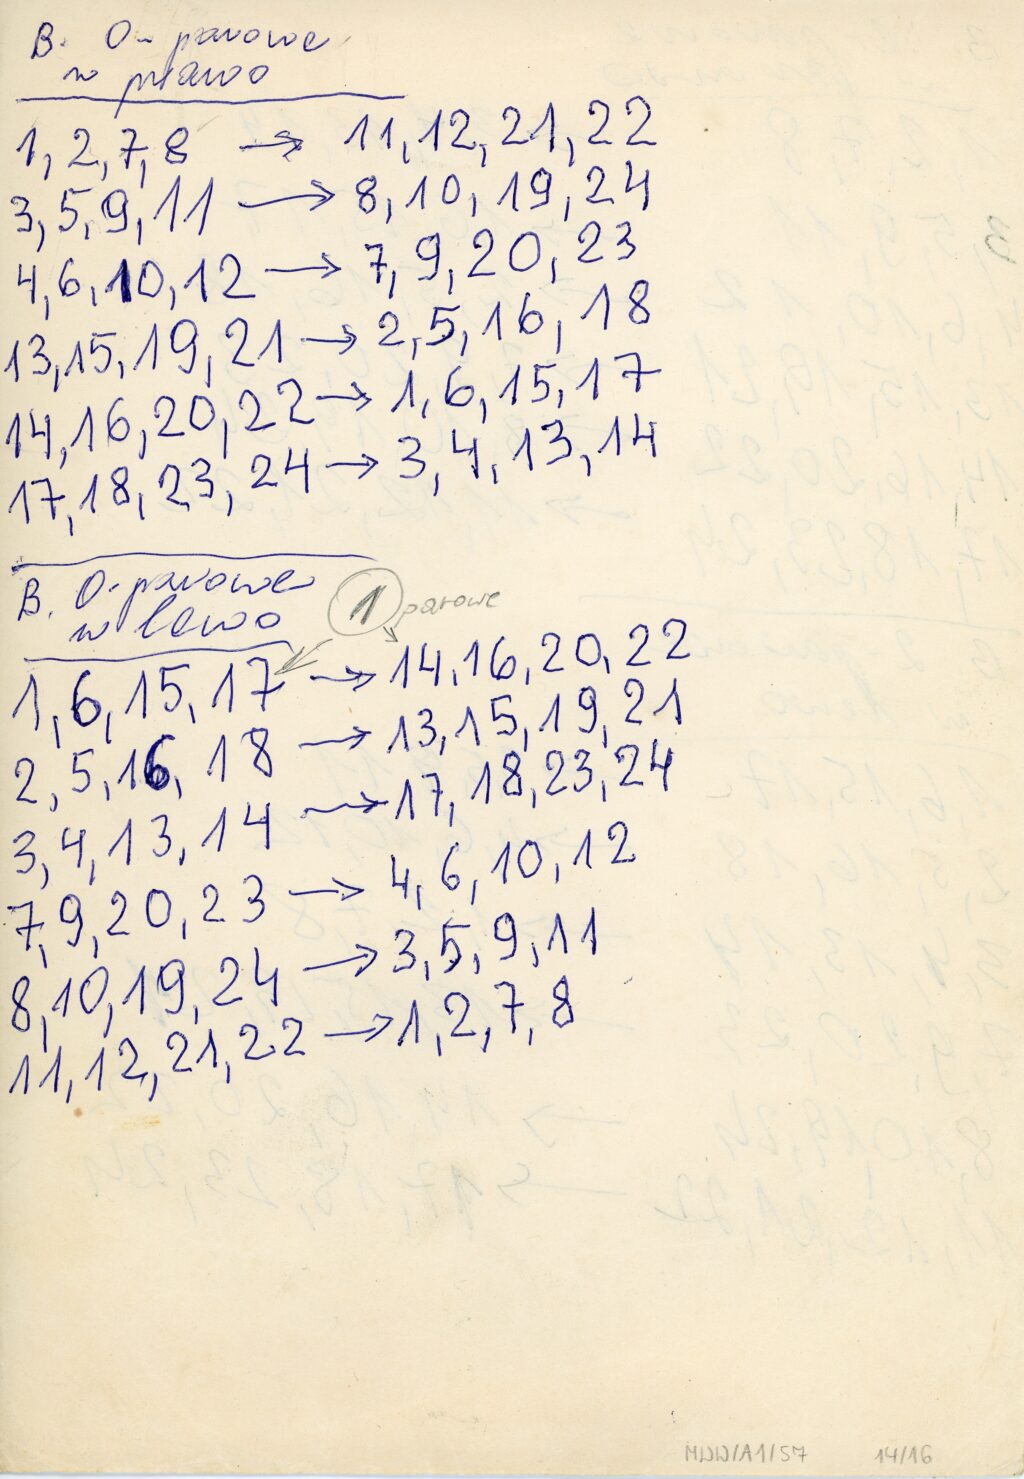 B. O-parowe
w prawo
1, 2, 7, 8 → 11, 12, 21, 22
3, 5, 9, 11 → 8, 10, 19, 24
4, 6, 10, 12 → 7, 9, 20, 23
13, 15, 19, 21 → 2, 5, 16, 18
14, 16, 20, 22 → 1, 6, 15, 17
17, 18, 23, 24 → 3, 4, 13, 14
B. O-parowe
w lewo
1 parowe
1, 6, 15, 17 → 14, 16, 20, 22
2, 5, 16, 18 → 13, 15, 19, 21
3, 4, 13, 14 → 17, 18, 23, 24
7, 9, 20, 23 → 4, 6, 10, 12
8, 10, 19, 24 → 3, 5, 9, 11
11, 12, 21, 22 → 1, 2, 7, 8
14/16